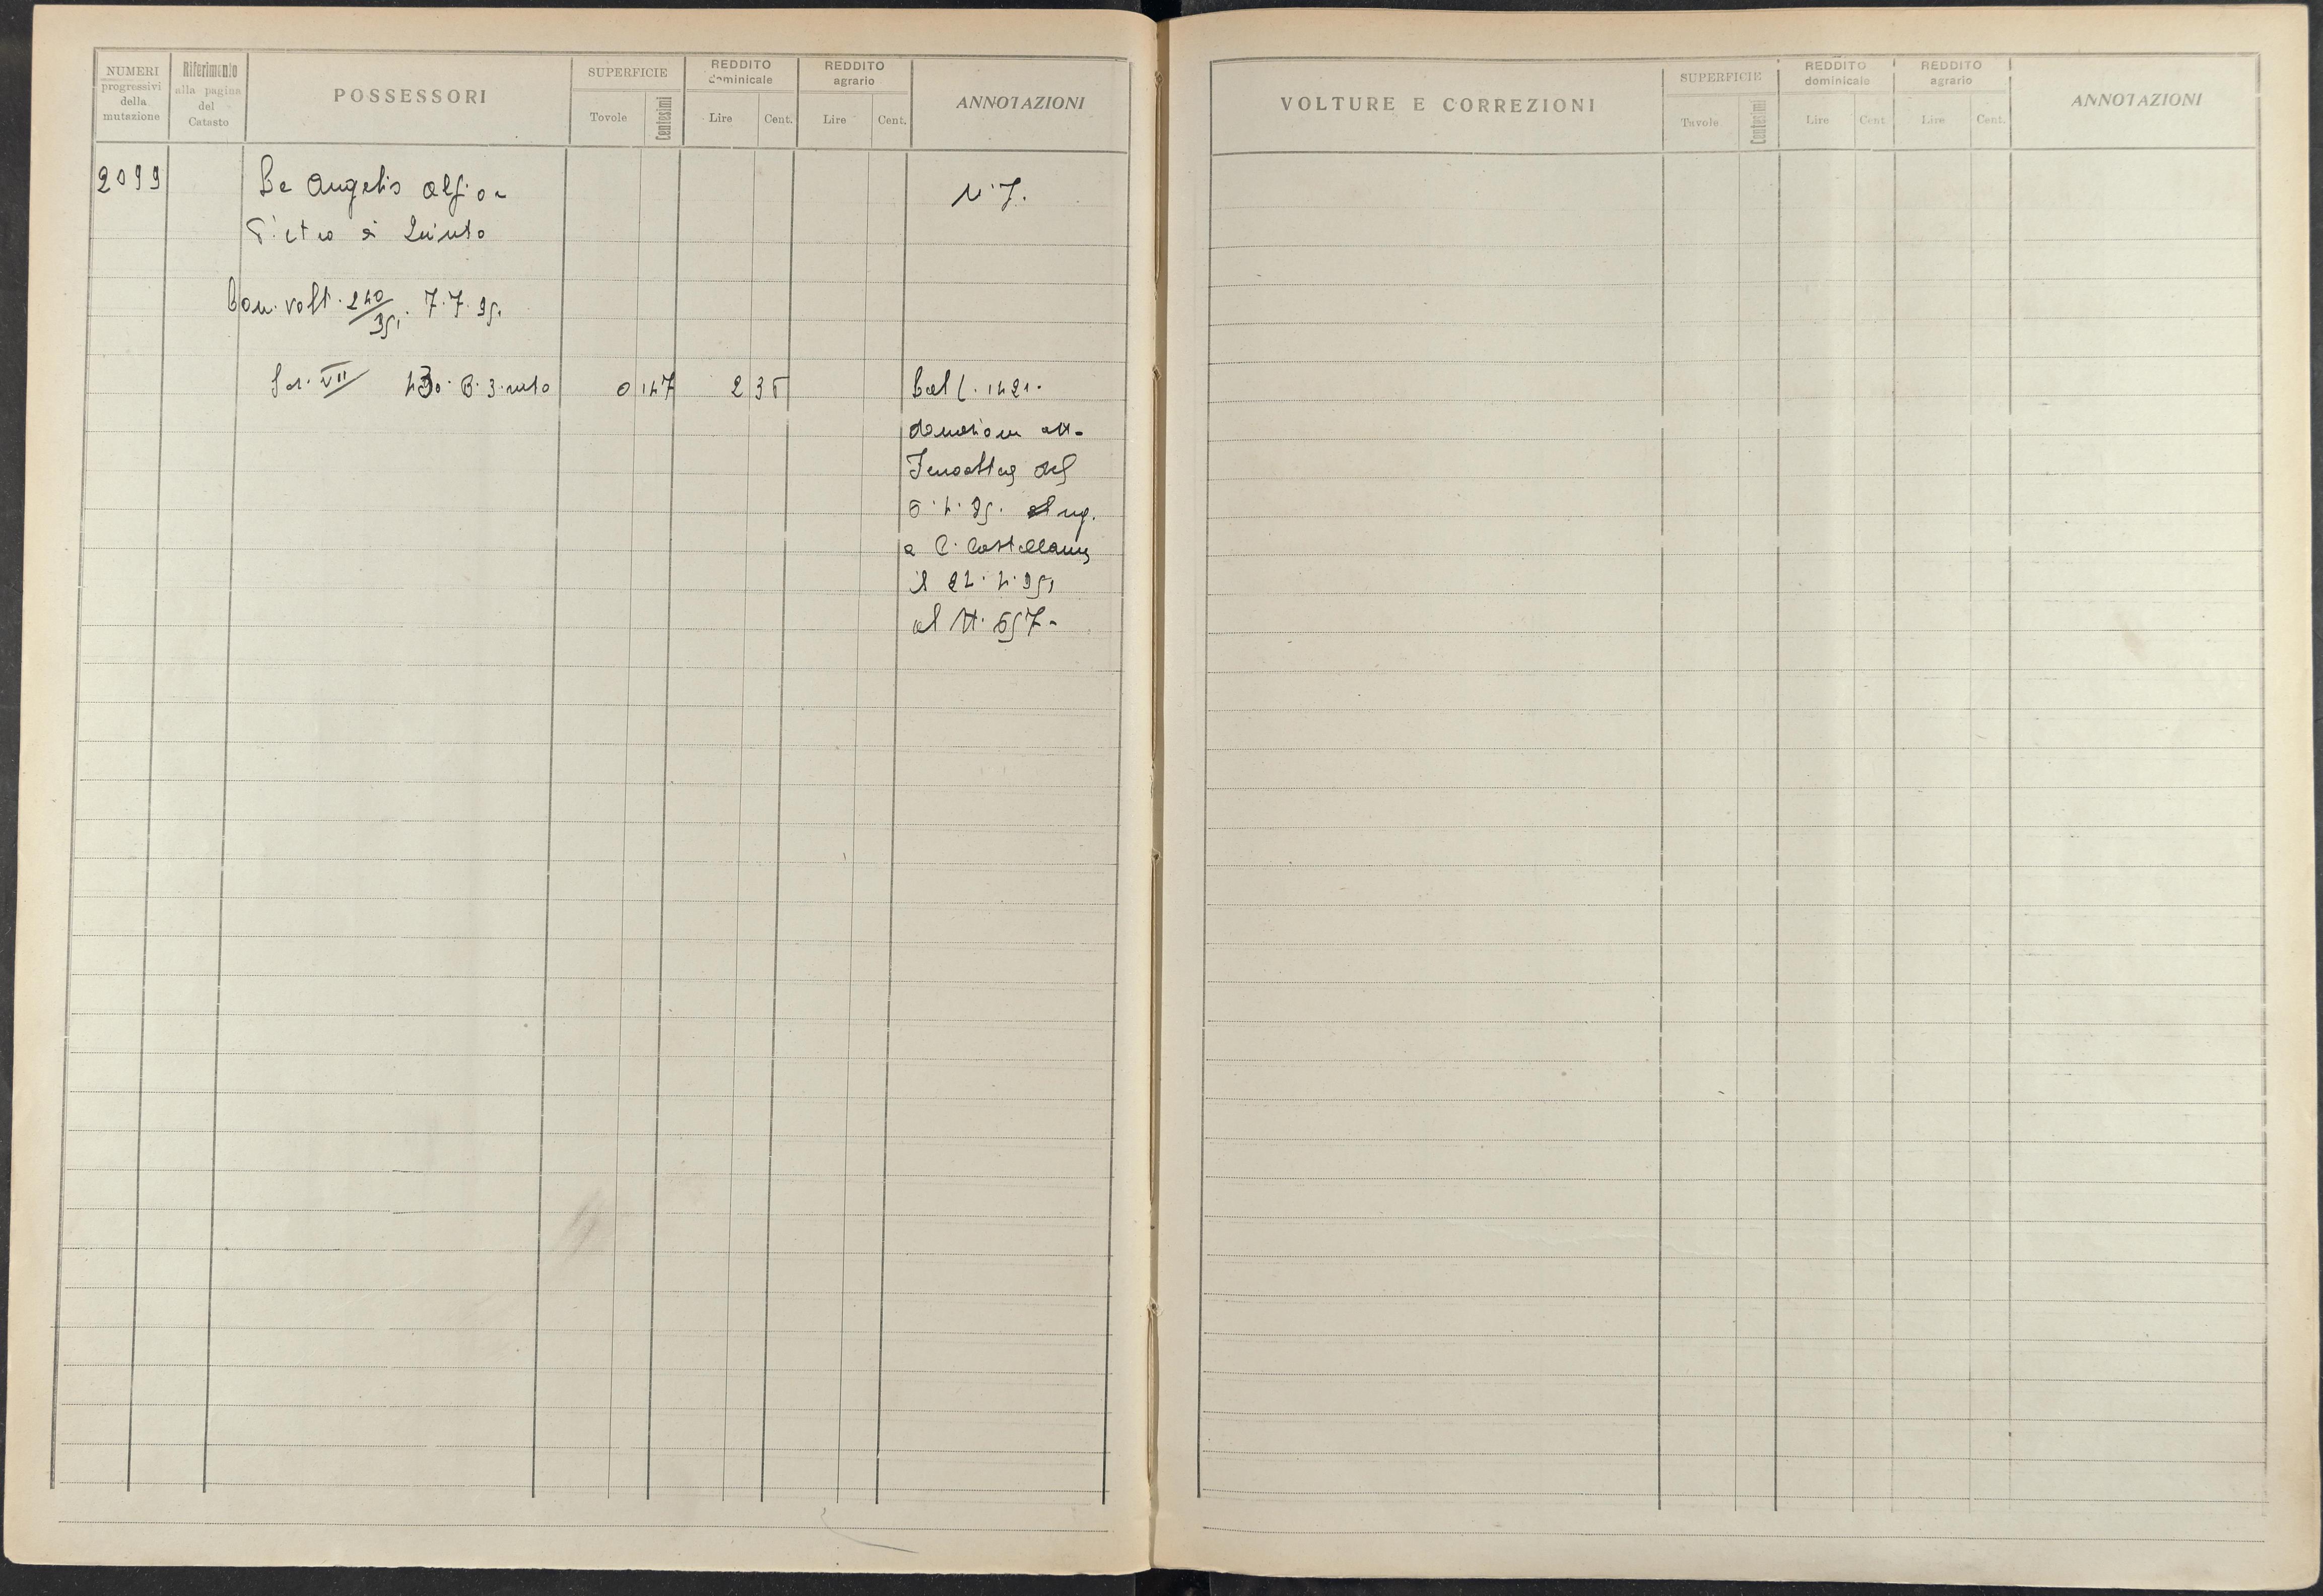 NUMERI
progressivi
della
mutazione
Riferimento
alla pagina
del
Catasto
POSSESSORI
SUPERFICIE
Tovole
Centesimi
REDDITO
dominicale
Lire
Cent.
REDDITO
agrario
Lire
Cent.
ANNOTAZIONI
2099
De Angelis Alfio e
N. 7.
Pietro di Quinto
Dom. volt. 240/35. 7.7.35.
Sez. VII 430. B. 3. nulo 0 147 2 35
Dal f. 1421.
donazione att.
del
6.4.35. Reg.
a C. Castellana
il 24.4.35,
al N. 657-
VOLTURE E CORREZIONI
SUPERFICIE
Tavole
Centesimi
REDDITO
dominicale
Lire
Cent
REDDITO
agrario
Lire
Cent.
ANNOTAZIONI